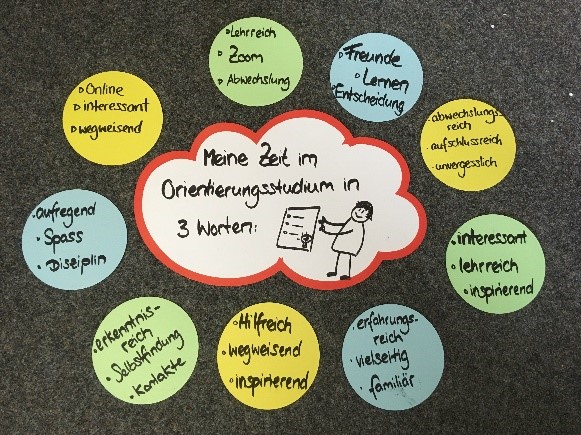 Meine Zeit im
Orientierungsstudium in
3 Worten:
Lehrreich
Zoom
Abwechslung
Freunde
Lernen
Entscheidung
abwechslungs-
reich
aufschlussreich
unvergesslich
interessant
lehrreich
inspirierend
erfahrungs-
reich
vielseitig
familiär
Hilfreich
wegweisend
inspirierend
erkenntnis-
reich
Selbstfindung
Kontakte
aufregend
Spass
Disziplin
Online
interessant
wegweisend